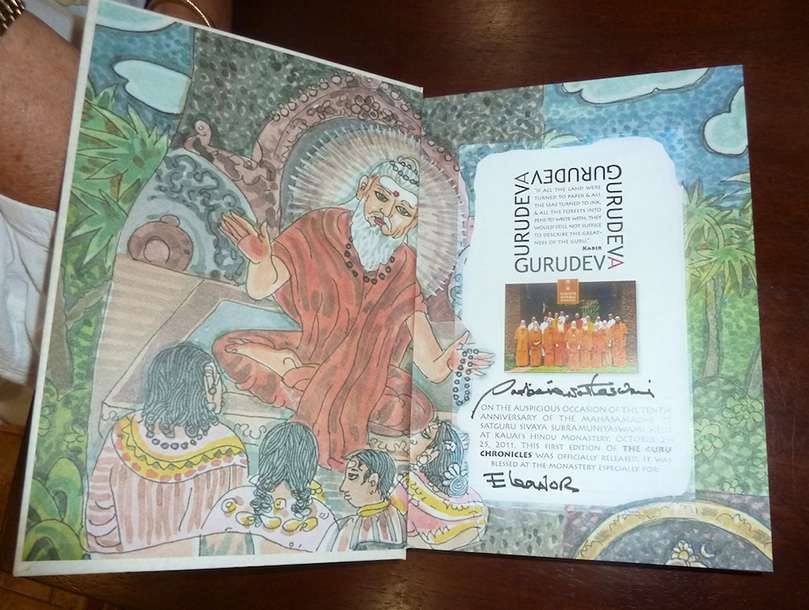 GURUDEVA
GURUDEVA
GURUDEVA
"IF ALL THE LAND WERE
TURNED TO PAPER & ALL
THE SEAS TURNED TO INK,
& ALL THE FORESTS INTO
PENS TO WRITE WITH, THEY
WOULD STILL NOT SUFFICE
TO DESCRIBE THE GREAT-
NESS OF THE GURU."
KABIR
GURUDEVA
ON THE AUSPICIOUS OCCASION OF THE TENTH
ANNIVERSARY OF THE MAHASAMADHI
SATGURU SIVAYA SUBRAMUNIYASWAMI HELD
AT KAUAI'S HINDU MONASTERY, OCTOBER
25, 2011, THIS FIRST EDITION OF THE GURU
CHRONICLES WAS OFFICIALLY RELEASED. IT WAS
BLESSED AT THE MONASTERY ESPECIALLY FOR:
ELEANOR